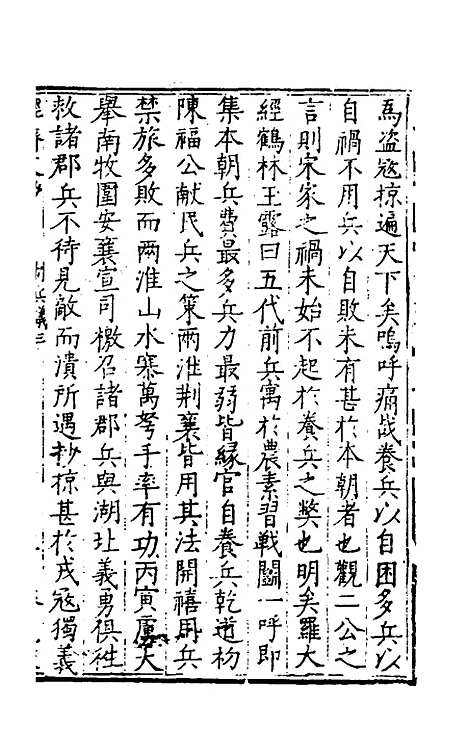 爲盜寇掠遍天下矣嗚呼痛哉養兵以自困多兵以
自禍不用兵以自敗未有甚於本朝者也觀二公之
言則宋家之禍未始不起於養兵之獘也明矣羅大
經鶴林王露曰五代前兵寓於農素習戰鬬一呼即
集本朝兵費最多兵力最弱皆緣官自養兵乾道初
陳福公献民兵之策兩淮荆襄皆用其法開禧用兵
禁旅多敗而兩淮山水寨萬弩手率有功丙寅虜大
舉南牧圍安襄宣司檄召諸郡兵與湖北義勇俱徃
救諸郡兵不待見敵而潰所遇抄掠甚於戎寇獨義